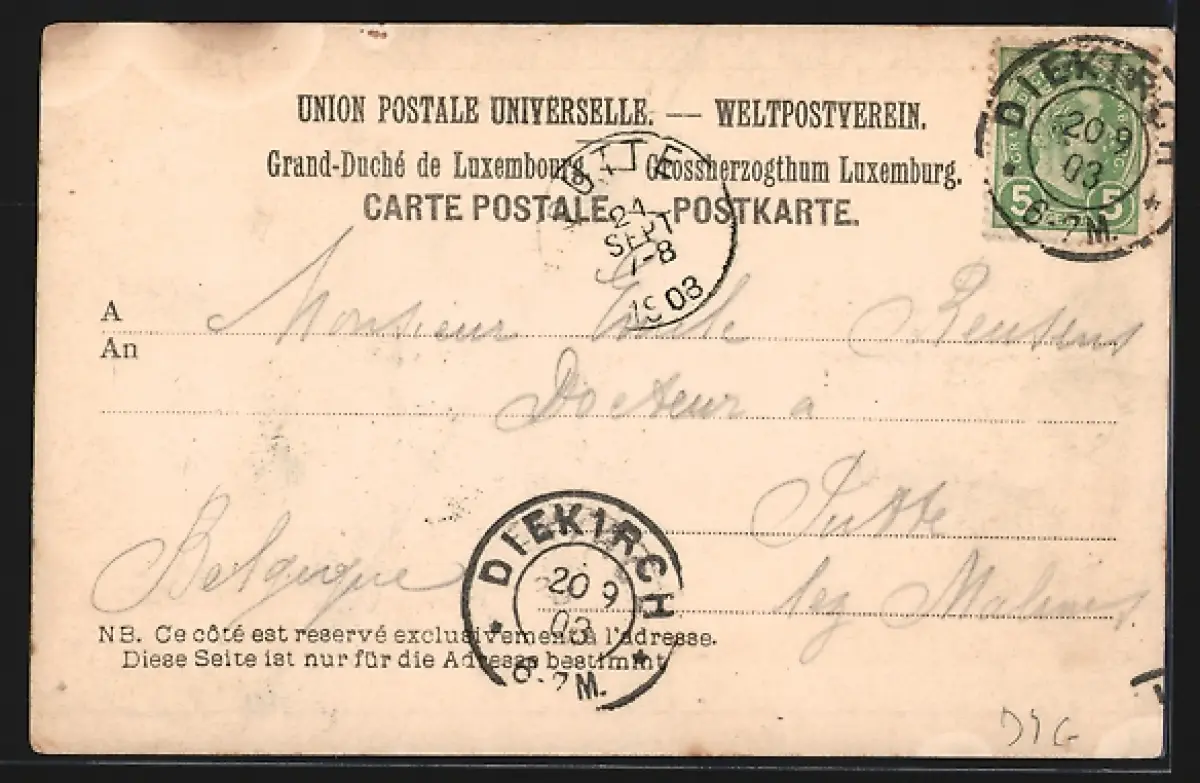 UNION POSTALE UNIVERSELLE. — WELTPOSTVEREIN.
Grand-Duché de Luxembourg. Grossherzogthum Luxemburg.
CARTE POSTALE. POSTKARTE.
DIEKIRCH
20 9
03
6-7 M.
5 5
PUTTE
21
SEPT
7-8
1903
A Monsieur Emile
An
Docteur à
Putte
Belgique
lez Malines
DIEKIRCH
20 9
03
6-7 M.
NB. Ce côté est reservé exclusivement à l'adresse.
Diese Seite ist nur für die Adresse bestimmt